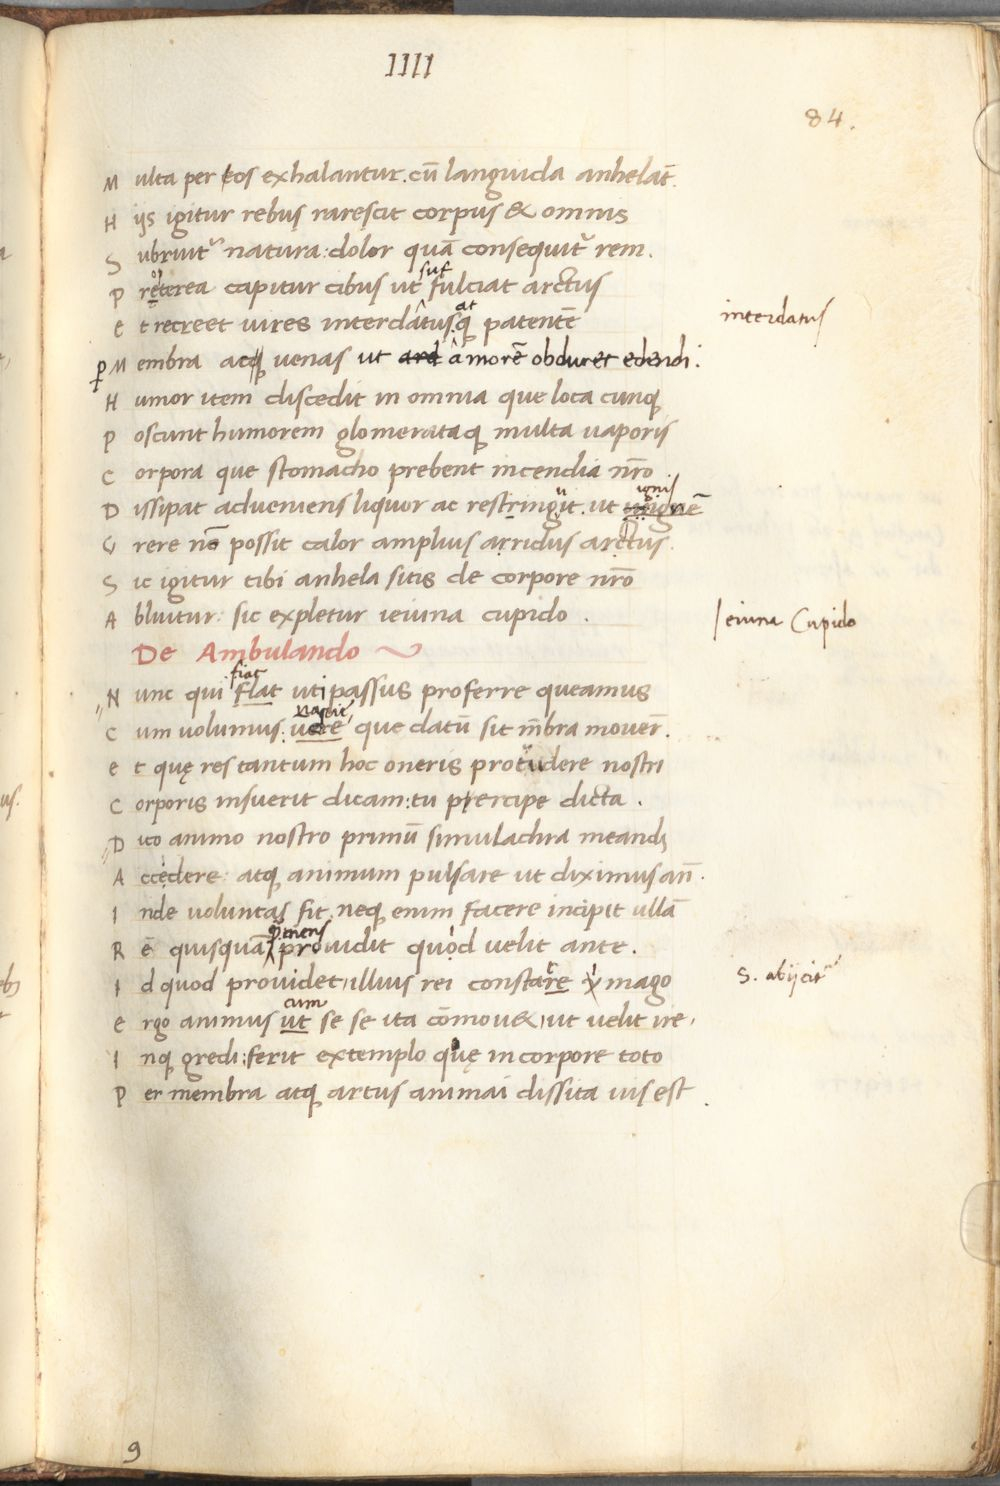 IIII
84.
M ulta per eos exhalantur. cū languida anhelāt.
H ijs igitur rebus rarescit corpus & omnis
S ubruitᷣ natura: dolor quā consequitᷣ rem.
P reterea capitur cibus ut suf fulciat artus
E t recreet uires interdatus. at q̨ patentē
interdatus
M embra atq̨ uenas ut amorē obduret edendi.
H umor item discedit in omnia que loca cunq̨
P oscunt humorem glomerataq̨ multa uaporis
C orpora que stomacho prebent incendia nr̄o
D issipat adueniens liquor ac restringit. ut ignis
U rere nō possit calor amplius arridus artus.
S ic igitur tibi anhela sitis de corpore nr̄o
A bluitur: sic expletur ieiuna cupido.
Ieiuna Cupido
De Ambulando
fiat
N unc qui flat uti passus proferre queamus
C um uolumus: uere que datū sit mēbra mouer̄.
E t quę res tantum hoc oneris protudere nostri
C orporis insuerit dicam: tu percipe dicta.
D ico animo nostro primū simulachra meandi
A ccedere: atq̨ animum pulsare ut diximus an̄.
I nde uoluntas fit. neq̨ enim facere incipit ullā
mens
R ē quisquā prouidit quod uelit ante.
I d quod prouidet, illius rei constare ymago
S. abijcitᷣ
cum
E rgo animus ut se se ita cōmou&, ut uelit ire,
I nq̨ gredi: ferit extemplo quę in corpore toto
P er membra atq̨ artus animai dissita uis est.
9